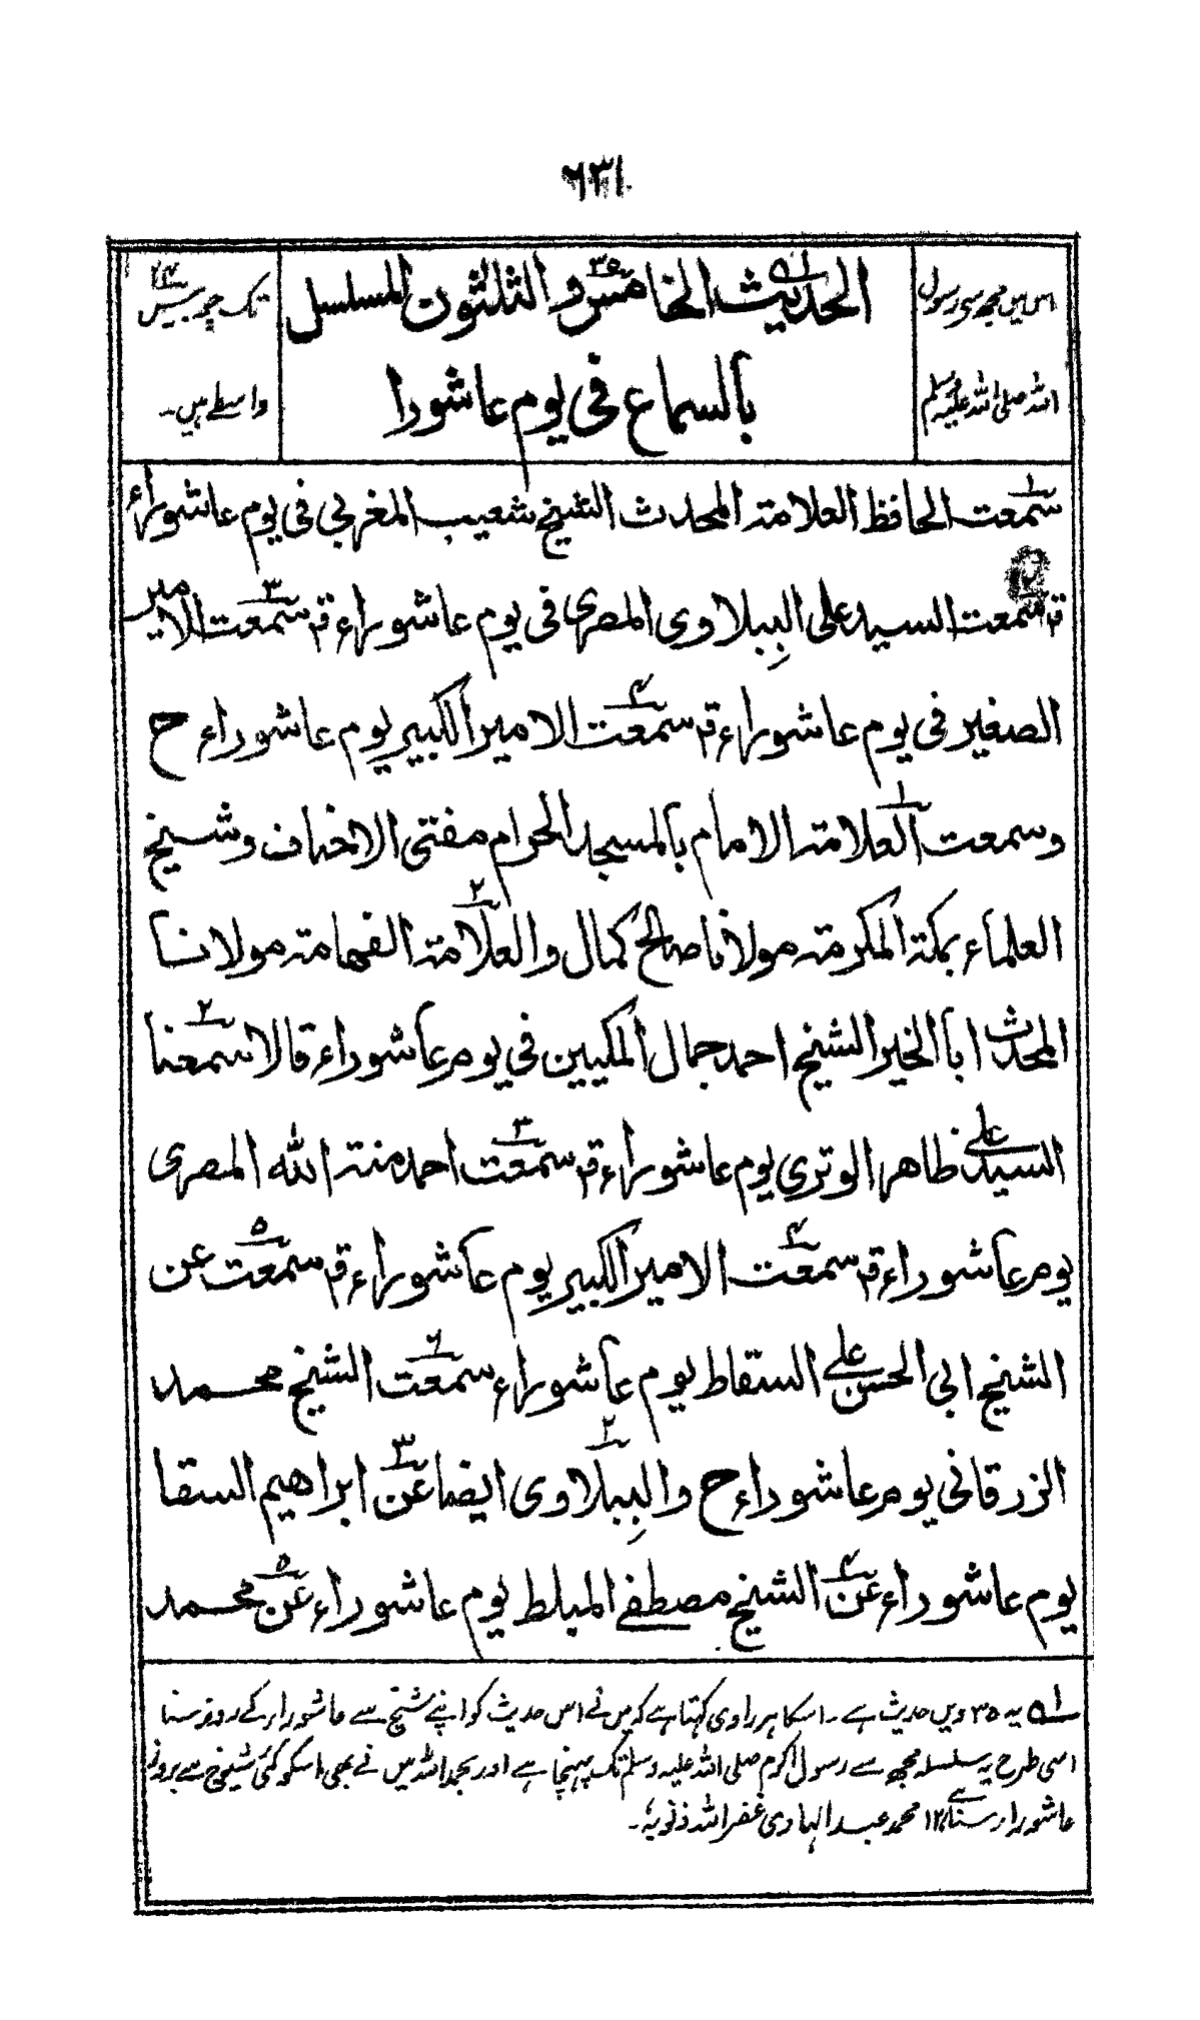 ٦٣١
اس میں مجھ سے رسول
اللہ صلی اللہ علیہ وسلم
الحدیث الخامس و الثلثون المسلسل
بالسماع فی یوم عاشورا
۲۴
تک چوبیس
واسطے ہیں۔
سمعت الحافظ العلامة المحدث الشیخ شعیب المغربی فی یوم عاشوراء
قر سمعت السید علی الببلاوی المصری فی یوم عاشوراء قر سمعت الامیر
الصغیر فی یوم عاشوراء قر سمعت الامیر الکبیر یوم عاشوراء ح
وسمعت العلامة الامام بالمسجد الحرام مفتی الاحناف وشیخ
العلماء بمکة المکرمة مولانا صالح کمال والعلامة الفهامة مولانا
المحدث ابا الخیر الشیخ احمد جمال المکیین فی یوم عاشوراء قالا سمعنا
السید علی ظاهر الوتری یوم عاشوراء قر سمعت احمد منة الله المصری
یوم عاشوراء قر سمعت الامیر الکبیر یوم عاشوراء قر سمعت عن
الشیخ ابی الحسن علی السقاط یوم عاشوراء سمعت الشیخ محمد
الزرقانی یوم عاشوراء ح والببلاوی ایضا عن ابراهیم السقا
یوم عاشوراء عن الشیخ مصطفے المبلط یوم عاشوراء عن محمد
۵۱ یہ ۳۵ ویں حدیث ہے۔ اسکا ہر راوی کہتا ہے کہ میں نے اس حدیث کو اپنے شیخ سے عاشوراء کے روز سنا
اسی طرح یہ سلسلہ مجھ سے رسول اکرم صلی اللہ علیہ وسلم تک پہنچا ہے اور بحمد اللہ میں نے بھی اسکو کئی شیوخ سے بروز
عاشوراء سنا ہے ۱۲ محمد عبد الہادی غفر اللہ ذنوبہٗ۔